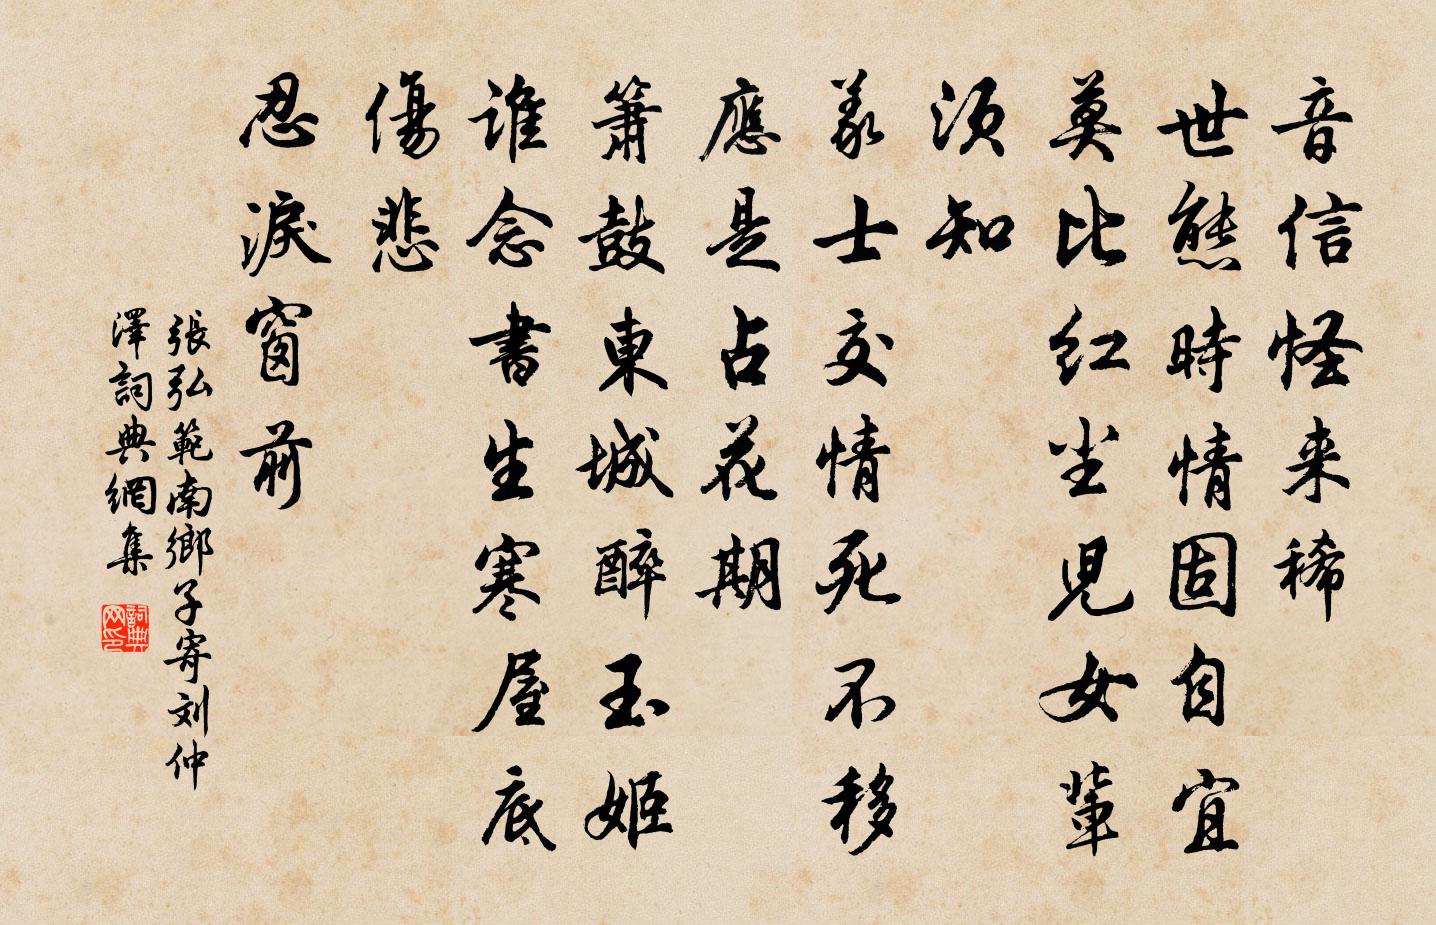 音信怪来稀
世態時情固自宜
莫比红尘児女輩
須知
義士交情死不移
應是占花期
簫鼓東城醉玉姬
誰念書生寒屋底
傷悲
忍淚窗前
張弘範南鄉子寄刘仲
澤詞典網集
詞典
网印